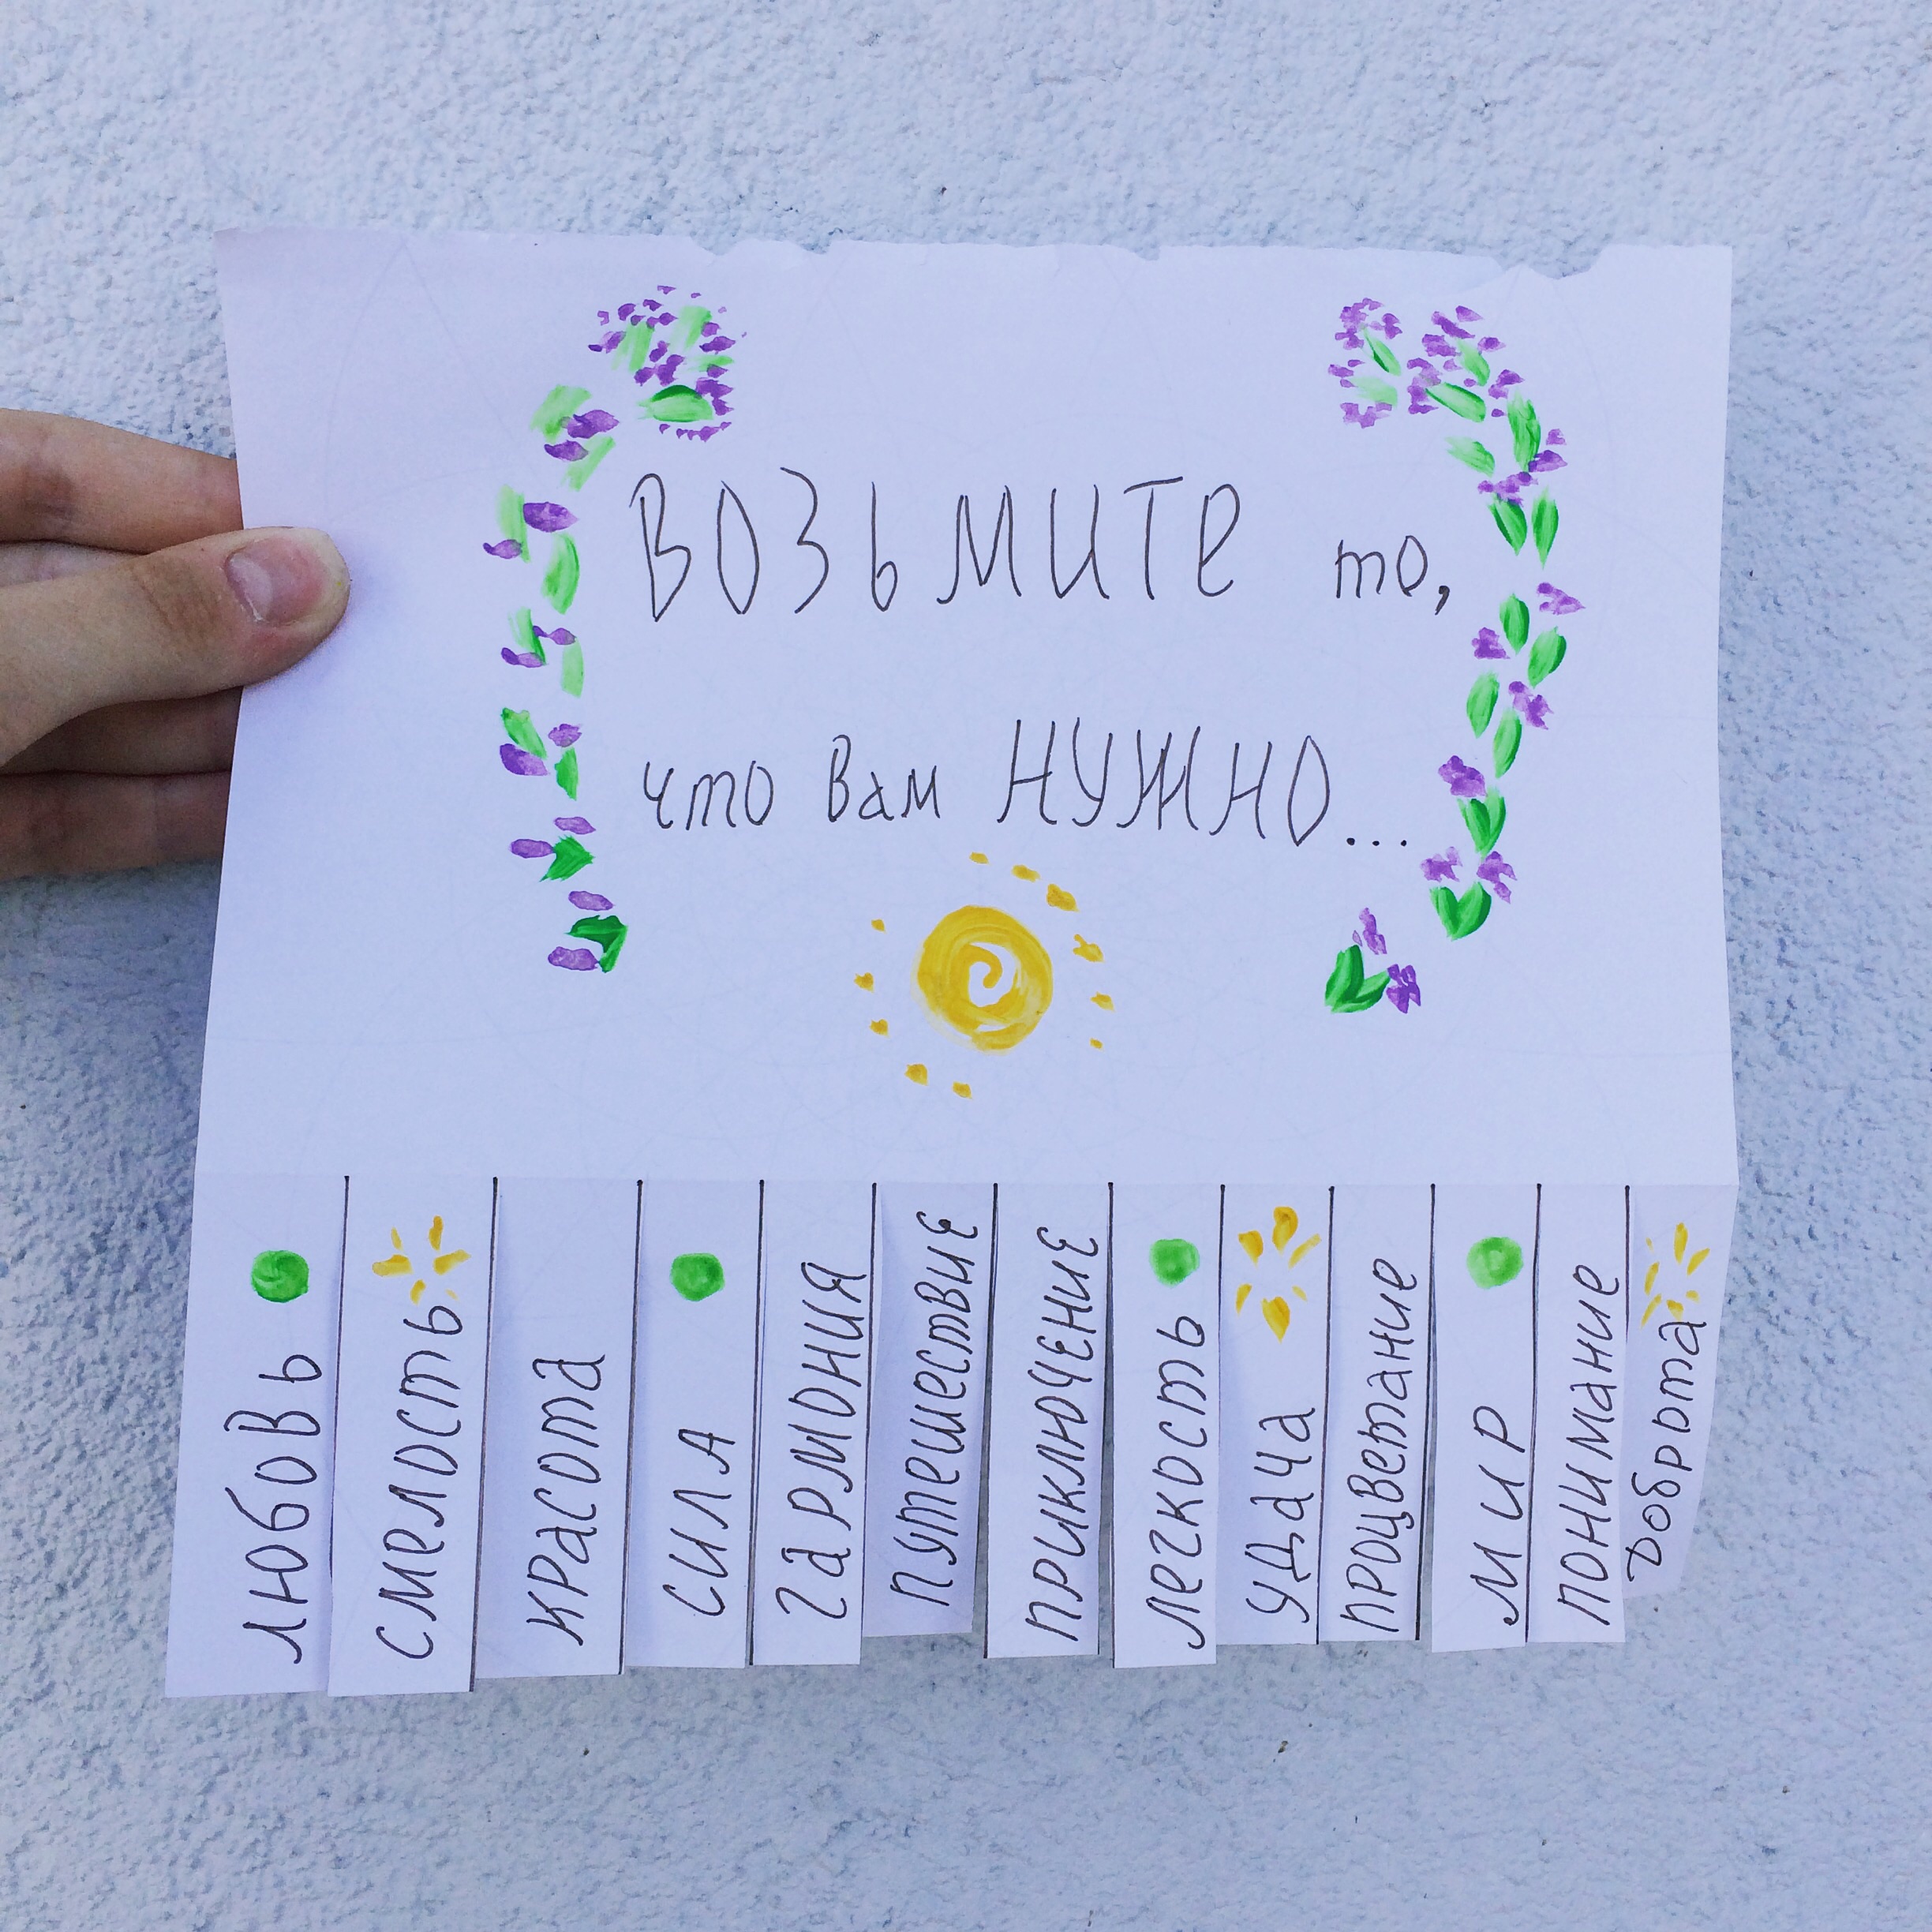 ВОЗЬМИТЕ то,
что вам НУЖНО...
любовь
смелость
красота
СИЛА
гармония
путешествие
приключение
легкость
удача
процветание
мир
понимание
Доброта